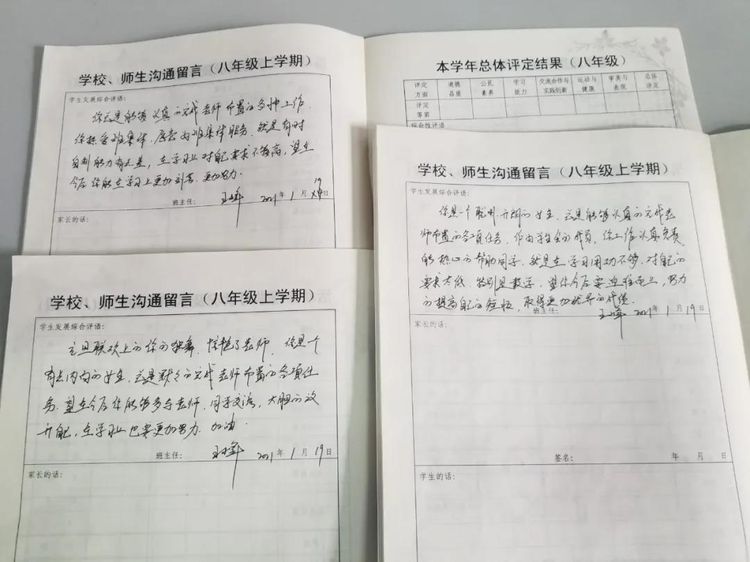 学校、师生沟通留言（八年级上学期）
学生发展综合评语：
你总是能够认真的完成老师布置的各种工作，
你热爱班集体，愿意为班集体服务。就是有时
自制能力有点差，在学习上对自己要求不够高，望在
今后你能在学习上更加刻苦、更加努力。
班主任： 2021年1月19日
家长的话：
本学年总体评定结果（八年级）
评定方面 道德品质 公民素养 学习能力 交流合作与实践创新 运动与健康 审美与表现 总体评定
评定等第
综合性评语
学校、师生沟通留言（八年级上学期）
学生发展综合评语：
元旦联欢上的你的独舞，惊艳了老师，你是一个
有点内向的女生，总是默默的完成老师布置的各项任
务。望在今后你能够多与老师、同学交流，大胆的放
开自己，在学习上也要更加努力，加油。
班主任： 2021年1月19日
家长的话：
学校、师生沟通留言（八年级上学期）
学生发展综合评语：
你是一个聪明、开朗的女生，总是能够认真的完成老
师布置的各项任务，作为学生会的成员，你工作认真负责，
能热心的帮助同学，就是在学习用功不够，对自己的
要求太低，特别是数学，望你今后要迎难而上，努力
的提高自己的短板，取得更加优异的成绩。
班主任： 2021年1月19日
家长的话：
签名： 年 月 日
学生的话：